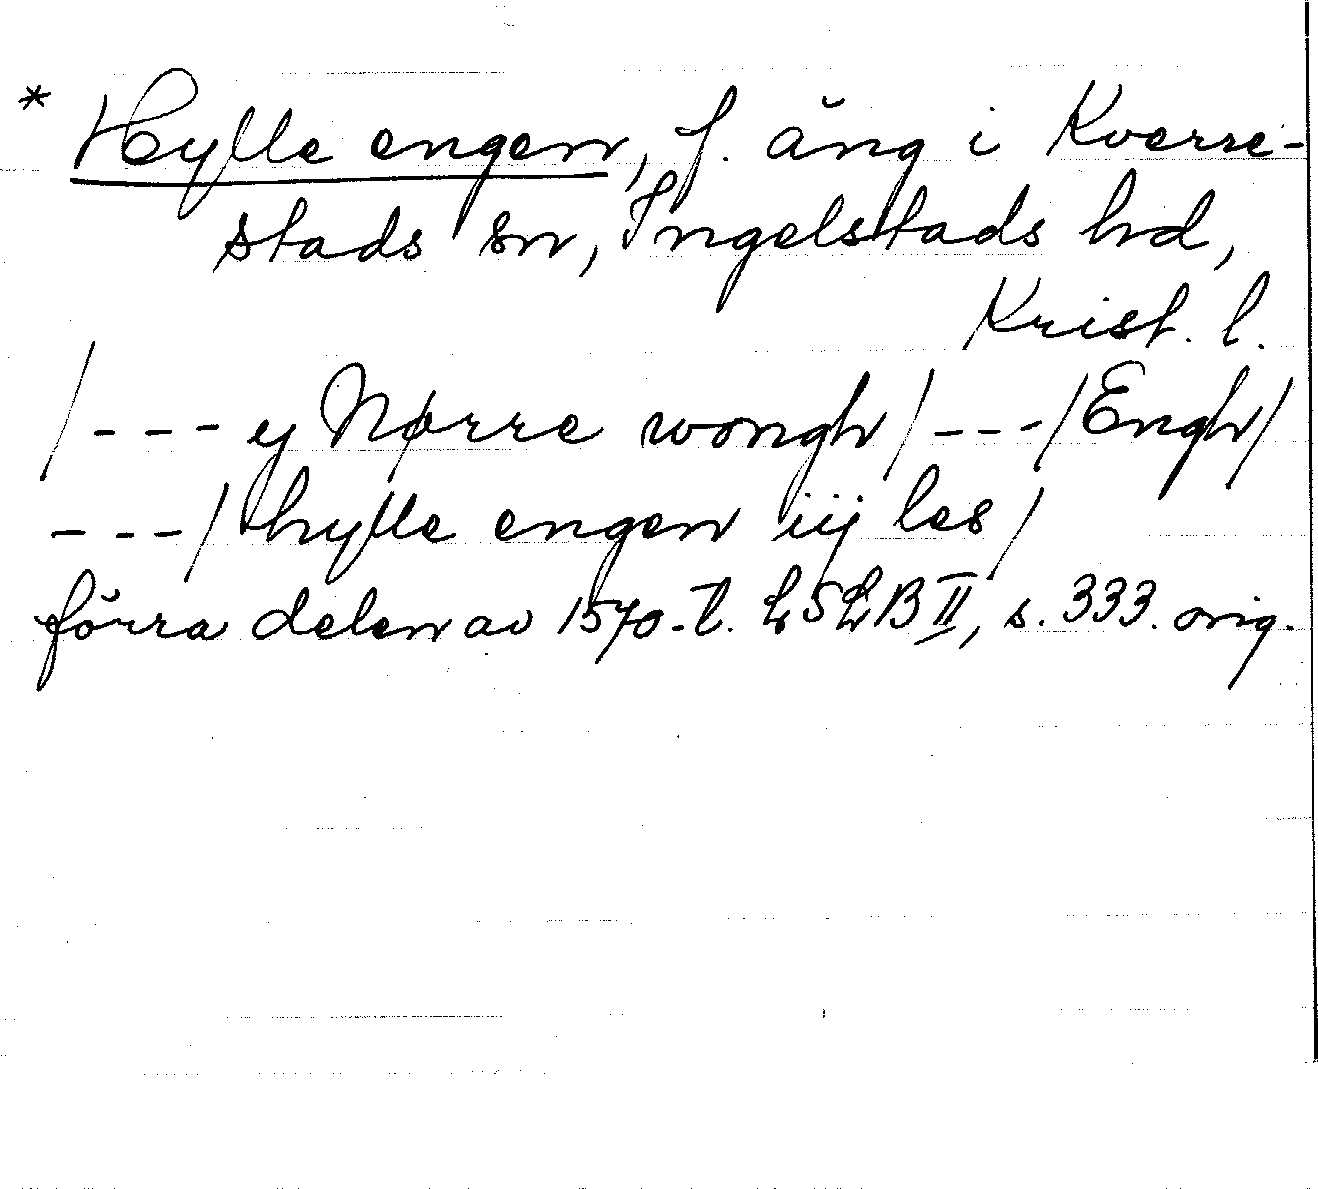 * Hylle engen, f. äng i Kverre-
stads sn, Ingelstads hd,
Krist. l.
/ - - - y Nørre wongh / - - - / Engh /
- - - / hylle engen iij les /
förra delen av 1570-t. LSLB II, s. 333. orig.